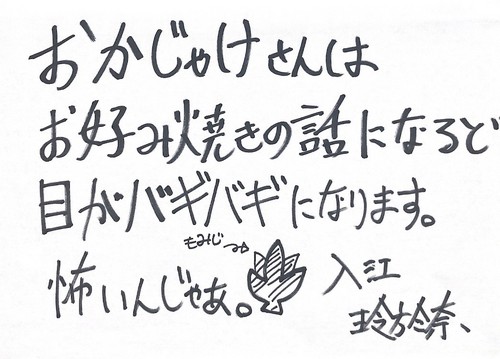 おかじゃけさんは
お好み焼きの話になると
目がバギバギになります。
もみじ→
怖いんじゃあ。
入江
玲於奈、